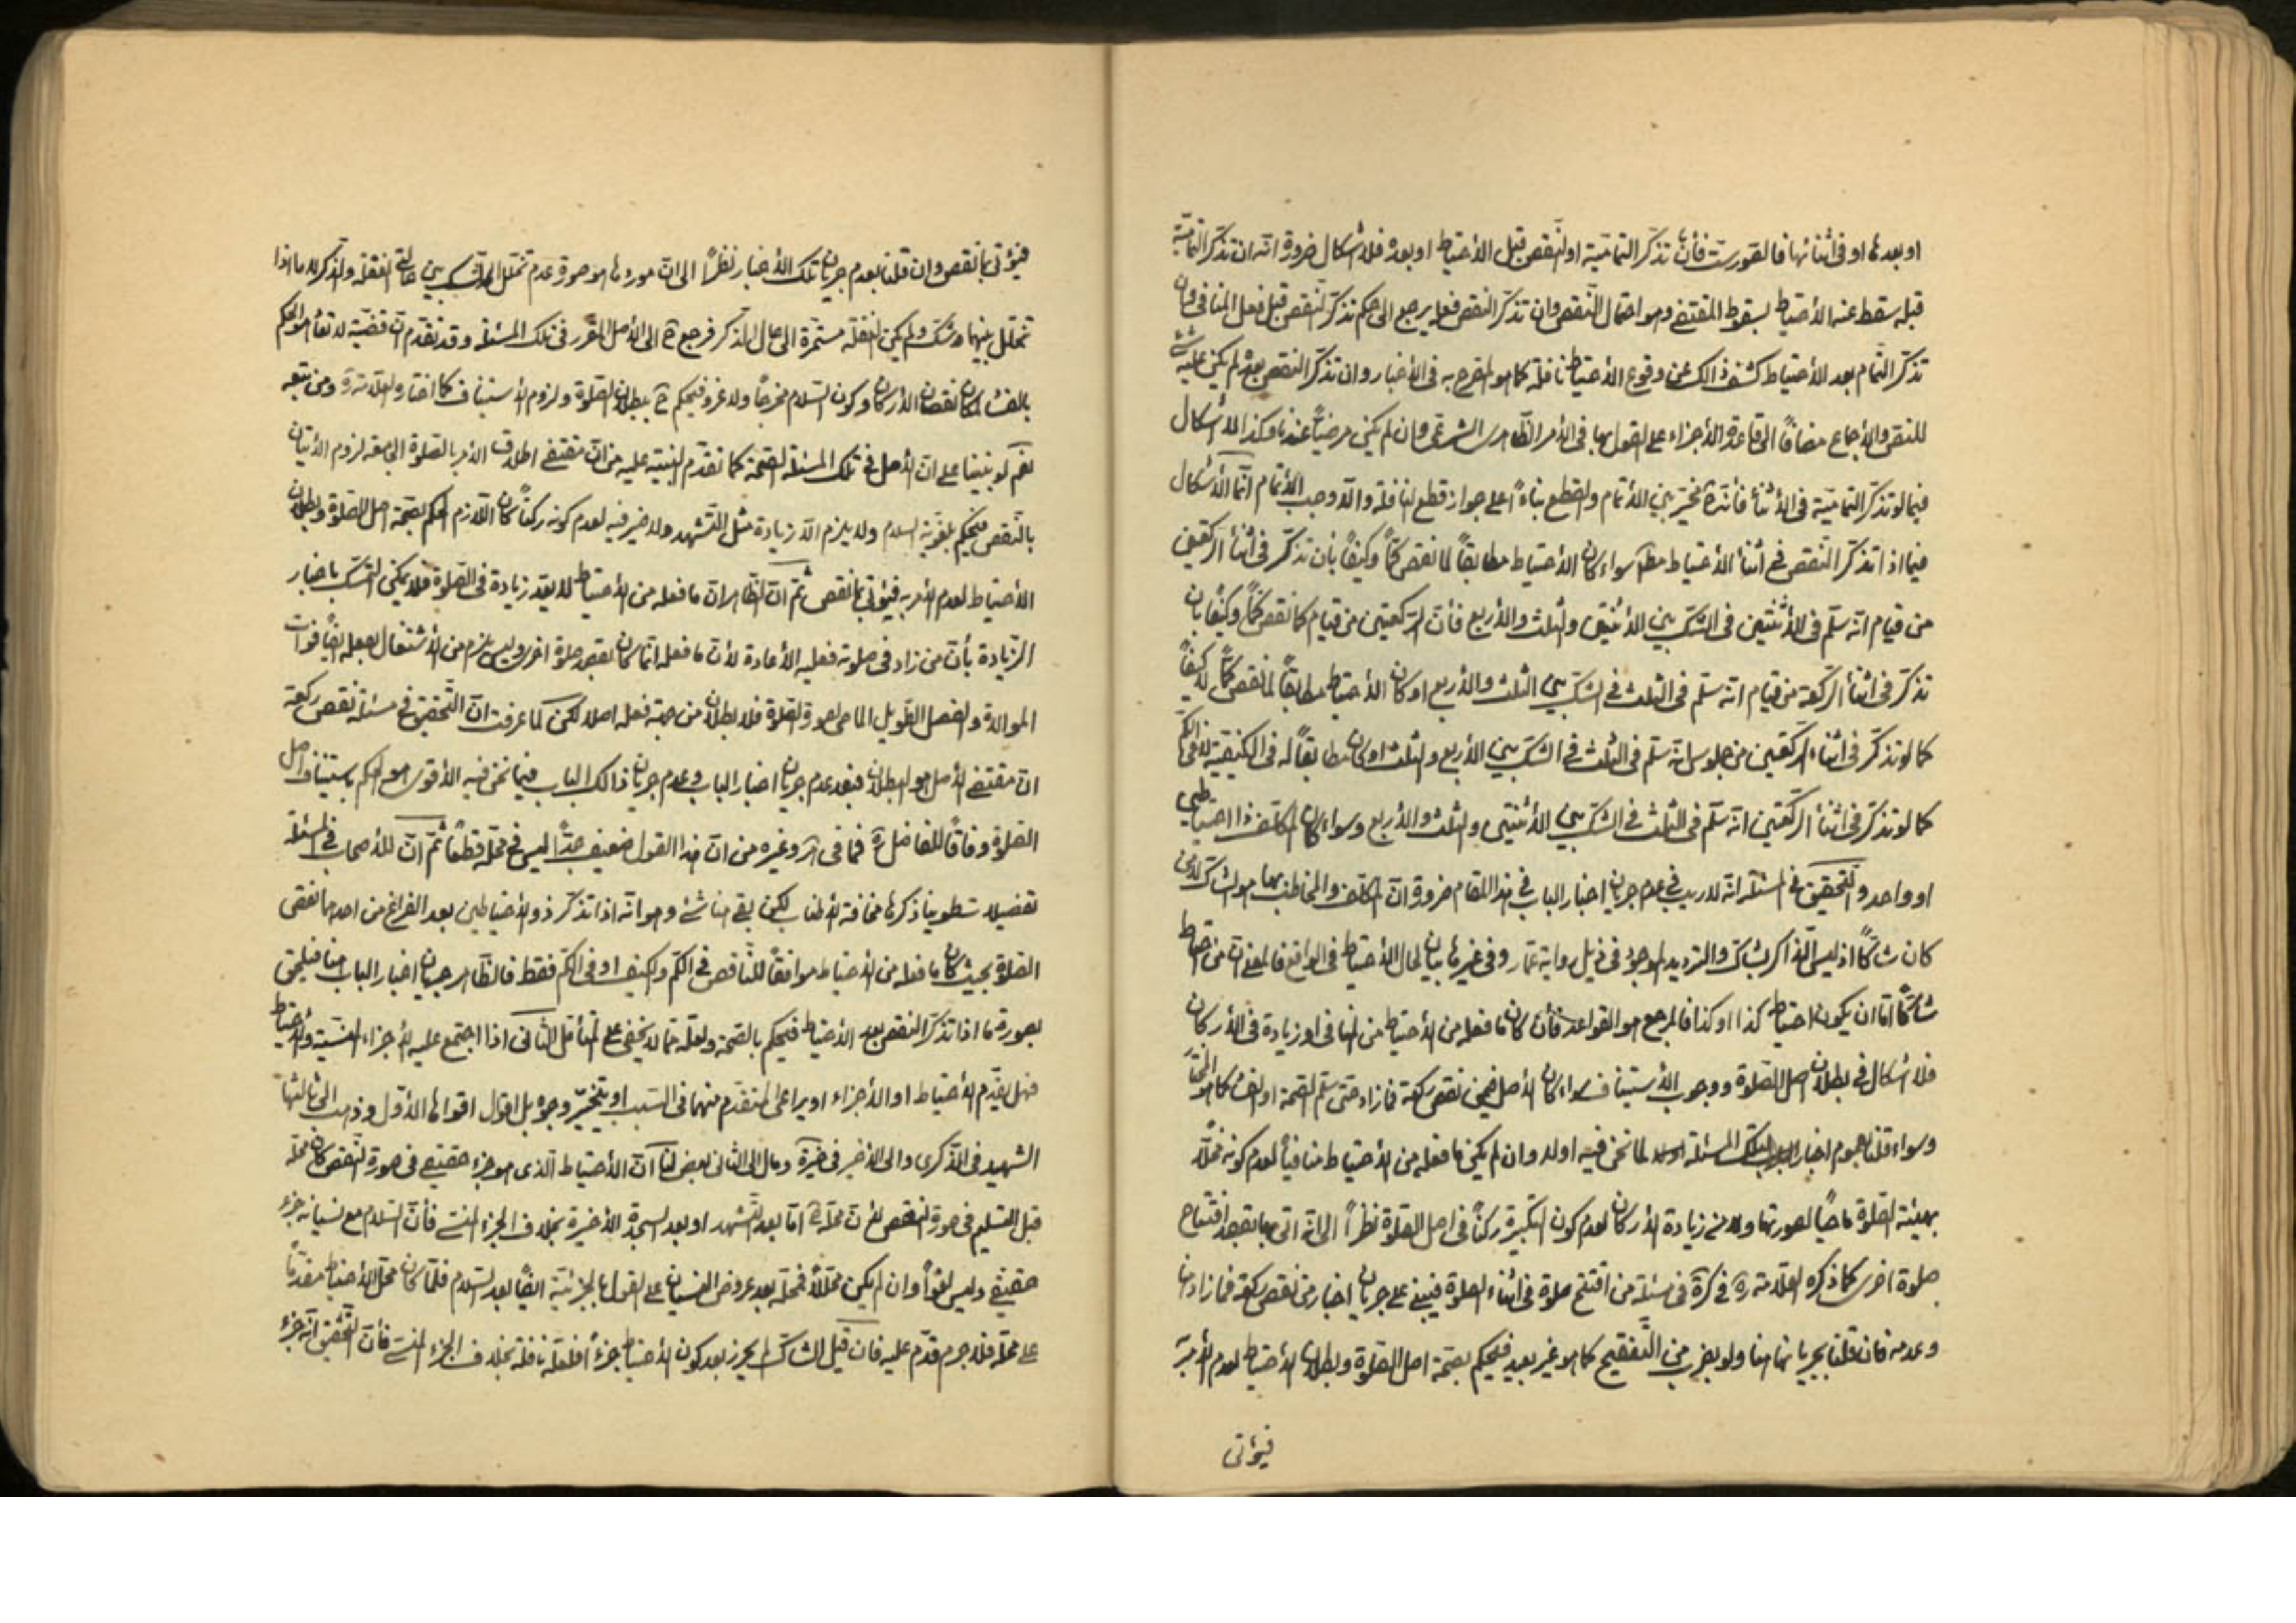 او بعدها او فى اثنائها فالصورست فأن تذكّر التماميّة او النقص قبل الأحتياط او بعده فلا اشكال ضرورة انّه ان تذكّر التماميّة
قبله سقط عنه الأحتياط لسقوط المقتضى وهو احتمال النّقص وان تذكّر النقص فعليه يرجع الى حكم تذكّر النّقص قبل فعل المنافى وان
تذكّر التّمام بعد الأحتياط كشف ذالك عن وقوع الأحتياط نافلة كما هو المصرّح به فى الأخبار وان تذكّر النقص بعده لم يكن عليه شئ
للنصّ والأجماع مضافاً الى قاعدة الأجزاء على القول بها فى الأمر الظّاهرى الشرعى وان لم يكن مرضيّاً عندنا وكذا لا اشكال
فيما لو تذكّر التماميّة فى الأثناء فأنّه يتخيّر بين الأتمام والقطع بناءً على جواز قطع النافلة والّا وجب الأتمام انّما الأشكال
فيما اذا تذكّر النّقص فى اثناء الأحتياط مطلقا سواء كان الأحتياط مطابقاً لما نقص كمّاً وكيفاً بأن تذكّر فى اثناء الركعتين
من قيام انّه سلّم فى الأثنتين فى الشكّ بين الأثنتين والثلث والأربع فأنّ الركعتين من قيام كما نقص كمّاً وكيفاً بان
تذكّر فى اثناء الركعة من قيام انّه سلّم فى الثلث فى الشكّ بين الثلث والأربع او كان الأحتياط مطابقاً لما نقص كمّاً لا كيفاً
كما لو تذكّر فى اثناء الركعتين من جلوس انّه سلّم فى الثلث فى الشكّ بين الأربع والثلث او كان مطابقاً له فى الكيفيّة لا فى الكمّ
كما لو تذكّر فى اثناء الركعتين انّه سلّم فى الثلث فى الشكّ بين الأثنتين والثلث والأربع وسواء كان المكلّف ذا احتياطين
او واحد والتّحقيق فى المسئلة انّه لا ريب فى عدم جريان اخبار الباب فى هذا المقام ضرورة انّ المكلّف والمخاطب بها هو الشاك الذى
كان شاكّاً اذ ليس الذاكر بشاكّ والترديد الموجود فى ذيل رواية عمّار وفى غيرها بيان لحال الأحتياط فى الواقع فالمعنى انّ من احتاط
شاكّاً امّا ان يكون احتياط كذا او كذا فالمرجع هو القواعد فأن كان ما فعله من الأحتياط من المنافى او زيادة فى الأركان
فلا اشكال فى بطلان اصل الصّلوة ووجوب الأستيناف سواء كان الأصل فيمن نقص ركعة فما زاد حتى سلّم الصّحة او الفساد كما هو المختار
وسواء قلنا بعموم اخبار تلك المسئلة لما نحن فيه او لا وان لم يكن ما فعله من الأحتياط منافياً لعدم كونه مخلّاً
بهيئة الصّلوة ماحياً لصورتها ولا من زيادة الأركان لعدم كون التكبيرة ركناً فى اصل الصّلوة نظراً الى انّه اتى بها بقصد افتتاح
صلوة اخرى كما ذكره العلّامة ره فى كرة فى مسئلة من افتتح صلوة فى اثناء الصلوة فيبنى على جريان اخبار من نقص ركعة فما زاد هنا
وعدمه فان قلنا بجريانها هنا ولو بضرب من التّنقيح كما هو غير بعيد فليحكم بصحّة اصل الصّلوة وبطلان الأحتياط لعدم الأمر به
فيؤتى
فيؤتى بما نقص وان قلنا بعدم جريان تلك الأخبار نظراً الى انّ موردها هو صورة عدم تخلّل الشكّ بين حالتى الغفلة والتذكر لا ما اذا
تخلّل بينهما شكّ ولم يكن الغفلة مستمرّة الى حال التذكر فيرجع ح الى الأصل المقرر فى تلك المسئلة وقد تقدّم انّ قضيّة القاعدة هو الحكم
بالفساد لمكان نقصان الأركان وكون السّلام مخرجاً ولا غرو فيحكم ح ببطلان الصّلوة ولزوم الأستيناف كما اختاره العلّامة ره ومن تبعه
نعم لو بنينا على انّ الأصل فى تلك المسئلة الصّحة كما تقدّم التنبيه عليه من انّ مقتضى اطلاق الأمر بالصّلوة الجامعة لزوم الأتيان
بالنّقص فيحكم بلغويّة السلام ولا يلزم الّا زيادة مثل التّشهد ولا ضير فيه لعدم كونه ركناً كان اللّازم الحكم بصحّة اصل الصّلوة وبطلان
الأحتياط لعدم الأمر به فيؤتى بما نقص ثمّ انّ الظّاهر انّ ما فعله من الأحتياط لا يعدّ زيادة فى الصّلوة فلا يمكن التمسّك باخبار
الزّيادة بأنّ من زاد فى صلوته فعليه الأعادة لأنّ ما فعله انّما كان بقصد صلوة اخرى وليس يلزم من الأشتغال بفعله ايضاً فوات
الموالاة والفصل الطّويل الماحى لصورة الصّلوة فلا بطلان من جهة فعله اصلا لكن لما عرفت انّ التّحقيق فى مسئلة نقص ركعة
انّ مقتضى الأصل هو البطلان فبعد عدم جريان اخبار الباب وعدم جريان ذالك الباب فيما نحن فيه الأقوى هو الحكم باستيناف اصل
الصّلوة وفاقاً للفاضل ره فما فى وغيره من انّ هذا القول ضعيف جدّاً ليس فى محلّه قطعاً ثمّ انّ للأصحاب فى المسئلة
تفصيلا طوينا ذكرها مخافة الأطناب لكن بقى هنا شئ وهو انّه اذا تذكّر ذو الأحتياطين بعد الفراغ من احدهما نقص
الصّلوة بحيث كان ما فعله من الأحتياط موافقاً للنّاقص فى الكمّ والكيف او فى الكمّ فقط فالظّاهر جريان اخبار الباب هنا فيلحق
بصورة ما اذا تذكّر النقص بعد الأحتياط فيحكم بالصّحة ولعلّه ممّا لا يخفى على المتأمّل الثّانى اذا اجتمع عليه الأجزاء المنسيّة والأحتياط
فهل يقدّم الأحتياط او الأجزاء او يراعى المتقدّم منهما فى السّبب او يتخيّر وجوه بل اقوال اقواها الأوّل وذهب الى ثالثها
الشهيد فى الذّكرى والى الأخير فى خيرة ومال الى الثانى بعض لنا انّ الأحتياط الّذى هو جزء حقيقى فى صورة النّقص كان محلّه
قبل التسليم فى صورة النقص لأنّ محلّه ح امّا بعد التّشهد او بعد السجدة الأخيرة بخلاف الجزء المنسى فأنّ السّلام مع نسيانه جزء
حقيقى وليس لغواً وان لم يكن محلّلاً فمحلّه بعد عروض النسيان على القول بالجزئيّة ايضاً بعد السّلام فلمّا كان محلّ الأحتياط مقدّماً
على محلّه فلا جرم قدّم عليه فان قيل الشاك لم يحرز بعد كون الأحتياط جزءاً فلعلّه نافلة بخلاف الجزء المنسى فأنّ التّحقيق انّه جزء